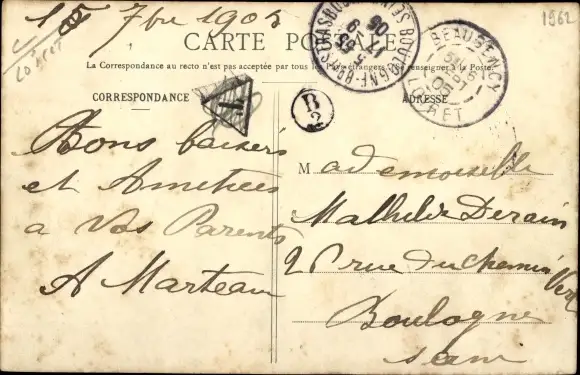 15 7bre 1905
1962
Loiret
CARTE POSTALE
La Correspondance au recto n'est pas acceptée par tous les Pays étrangers. Se renseigner à la Poste.
CORRESPONDANCE
ADRESSE
BEAUGENCY
LOIRET
B
2
Bons baisers
et Amitiées
a Vos Parents
A Marteau
Mademoiselle
Mathilde Derain
2 rue du chemin Vert
Boulogne
seine